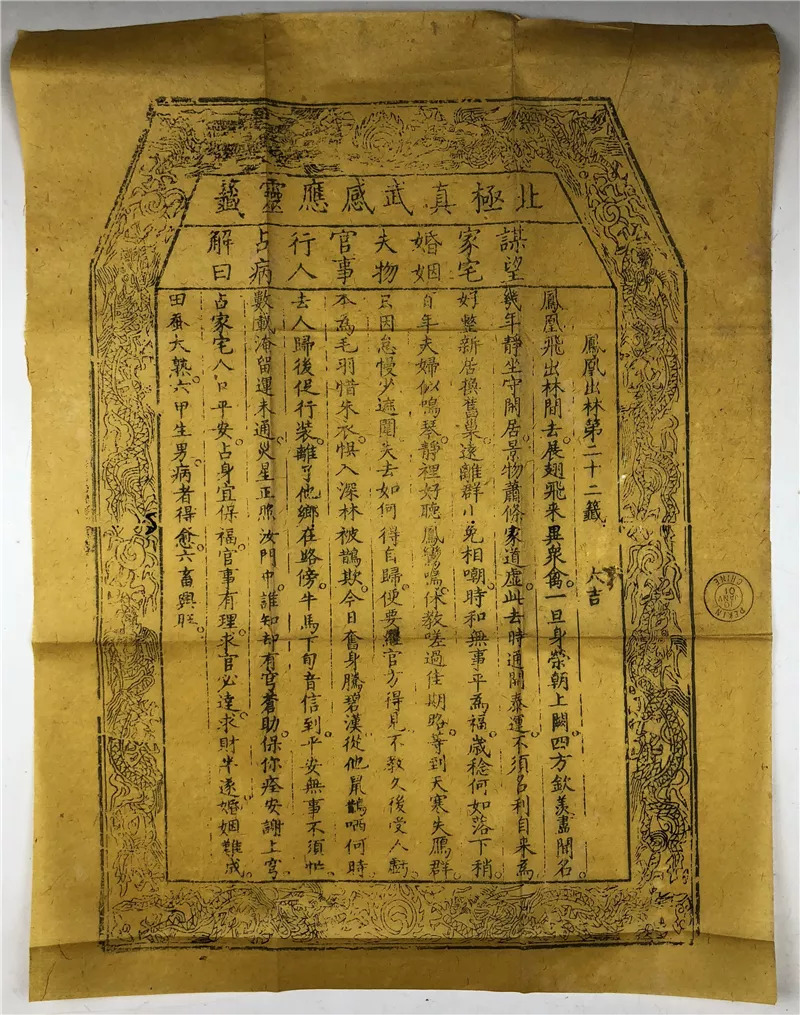 北極真武感應靈籤
鳳凰出林第二十二籤 大吉
鳳凰飛出林間去展翅飛來異衆禽。一旦身榮朝上闕四方欽羨盡聞名
謀望 幾年靜坐守閒居景物蕭條家道虛。此去時通開泰運。不須名利自來為
家宅 好整新居換舊巢。遠離群小免相嘲。時和無事平為福。歲稔何如落下稍
婚姻 百年夫婦似鳴琴靜裡好聽鳳鸞鳴。休教嗟過佳期路。等到天寒失鴈群。
夫物 只因怠慢少遮闌失去如何得自歸。便要官方得見不教久後受人虧
官事 本為毛羽惜朱衣惧入深林被鵲欺。今日奮身騰碧漢從他鼠鵲哂何時
行人 去人歸後促行裝。離了他鄉在路傍。牛馬下旬音信到平安無事不須忙。
占病 數載淹留運未通。火星正照汝門中。誰知却有穹蒼助。保你痊安謝上穹
解曰 占家宅人口平安占身宜保福。官事有理。求官必達。求財半遂。婚姻難成。
田蚕大熟。六甲生男病者得愈。六畜興旺。
PEKIN
CHINE